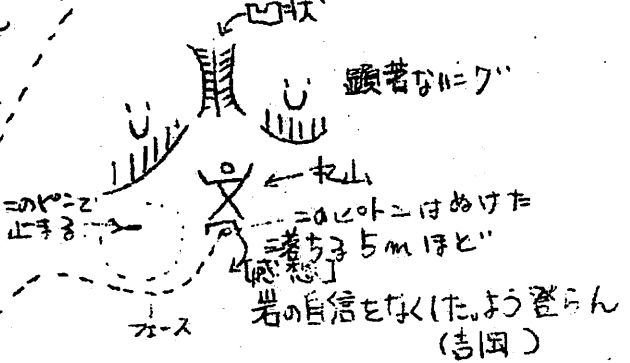 凹状
顕著なハング
杁山
このピンで
止まる
このピトンはぬけた
落ちる5mほど
[感想]
岩の自信をなくした。よう登らん
フェース
(吉岡)